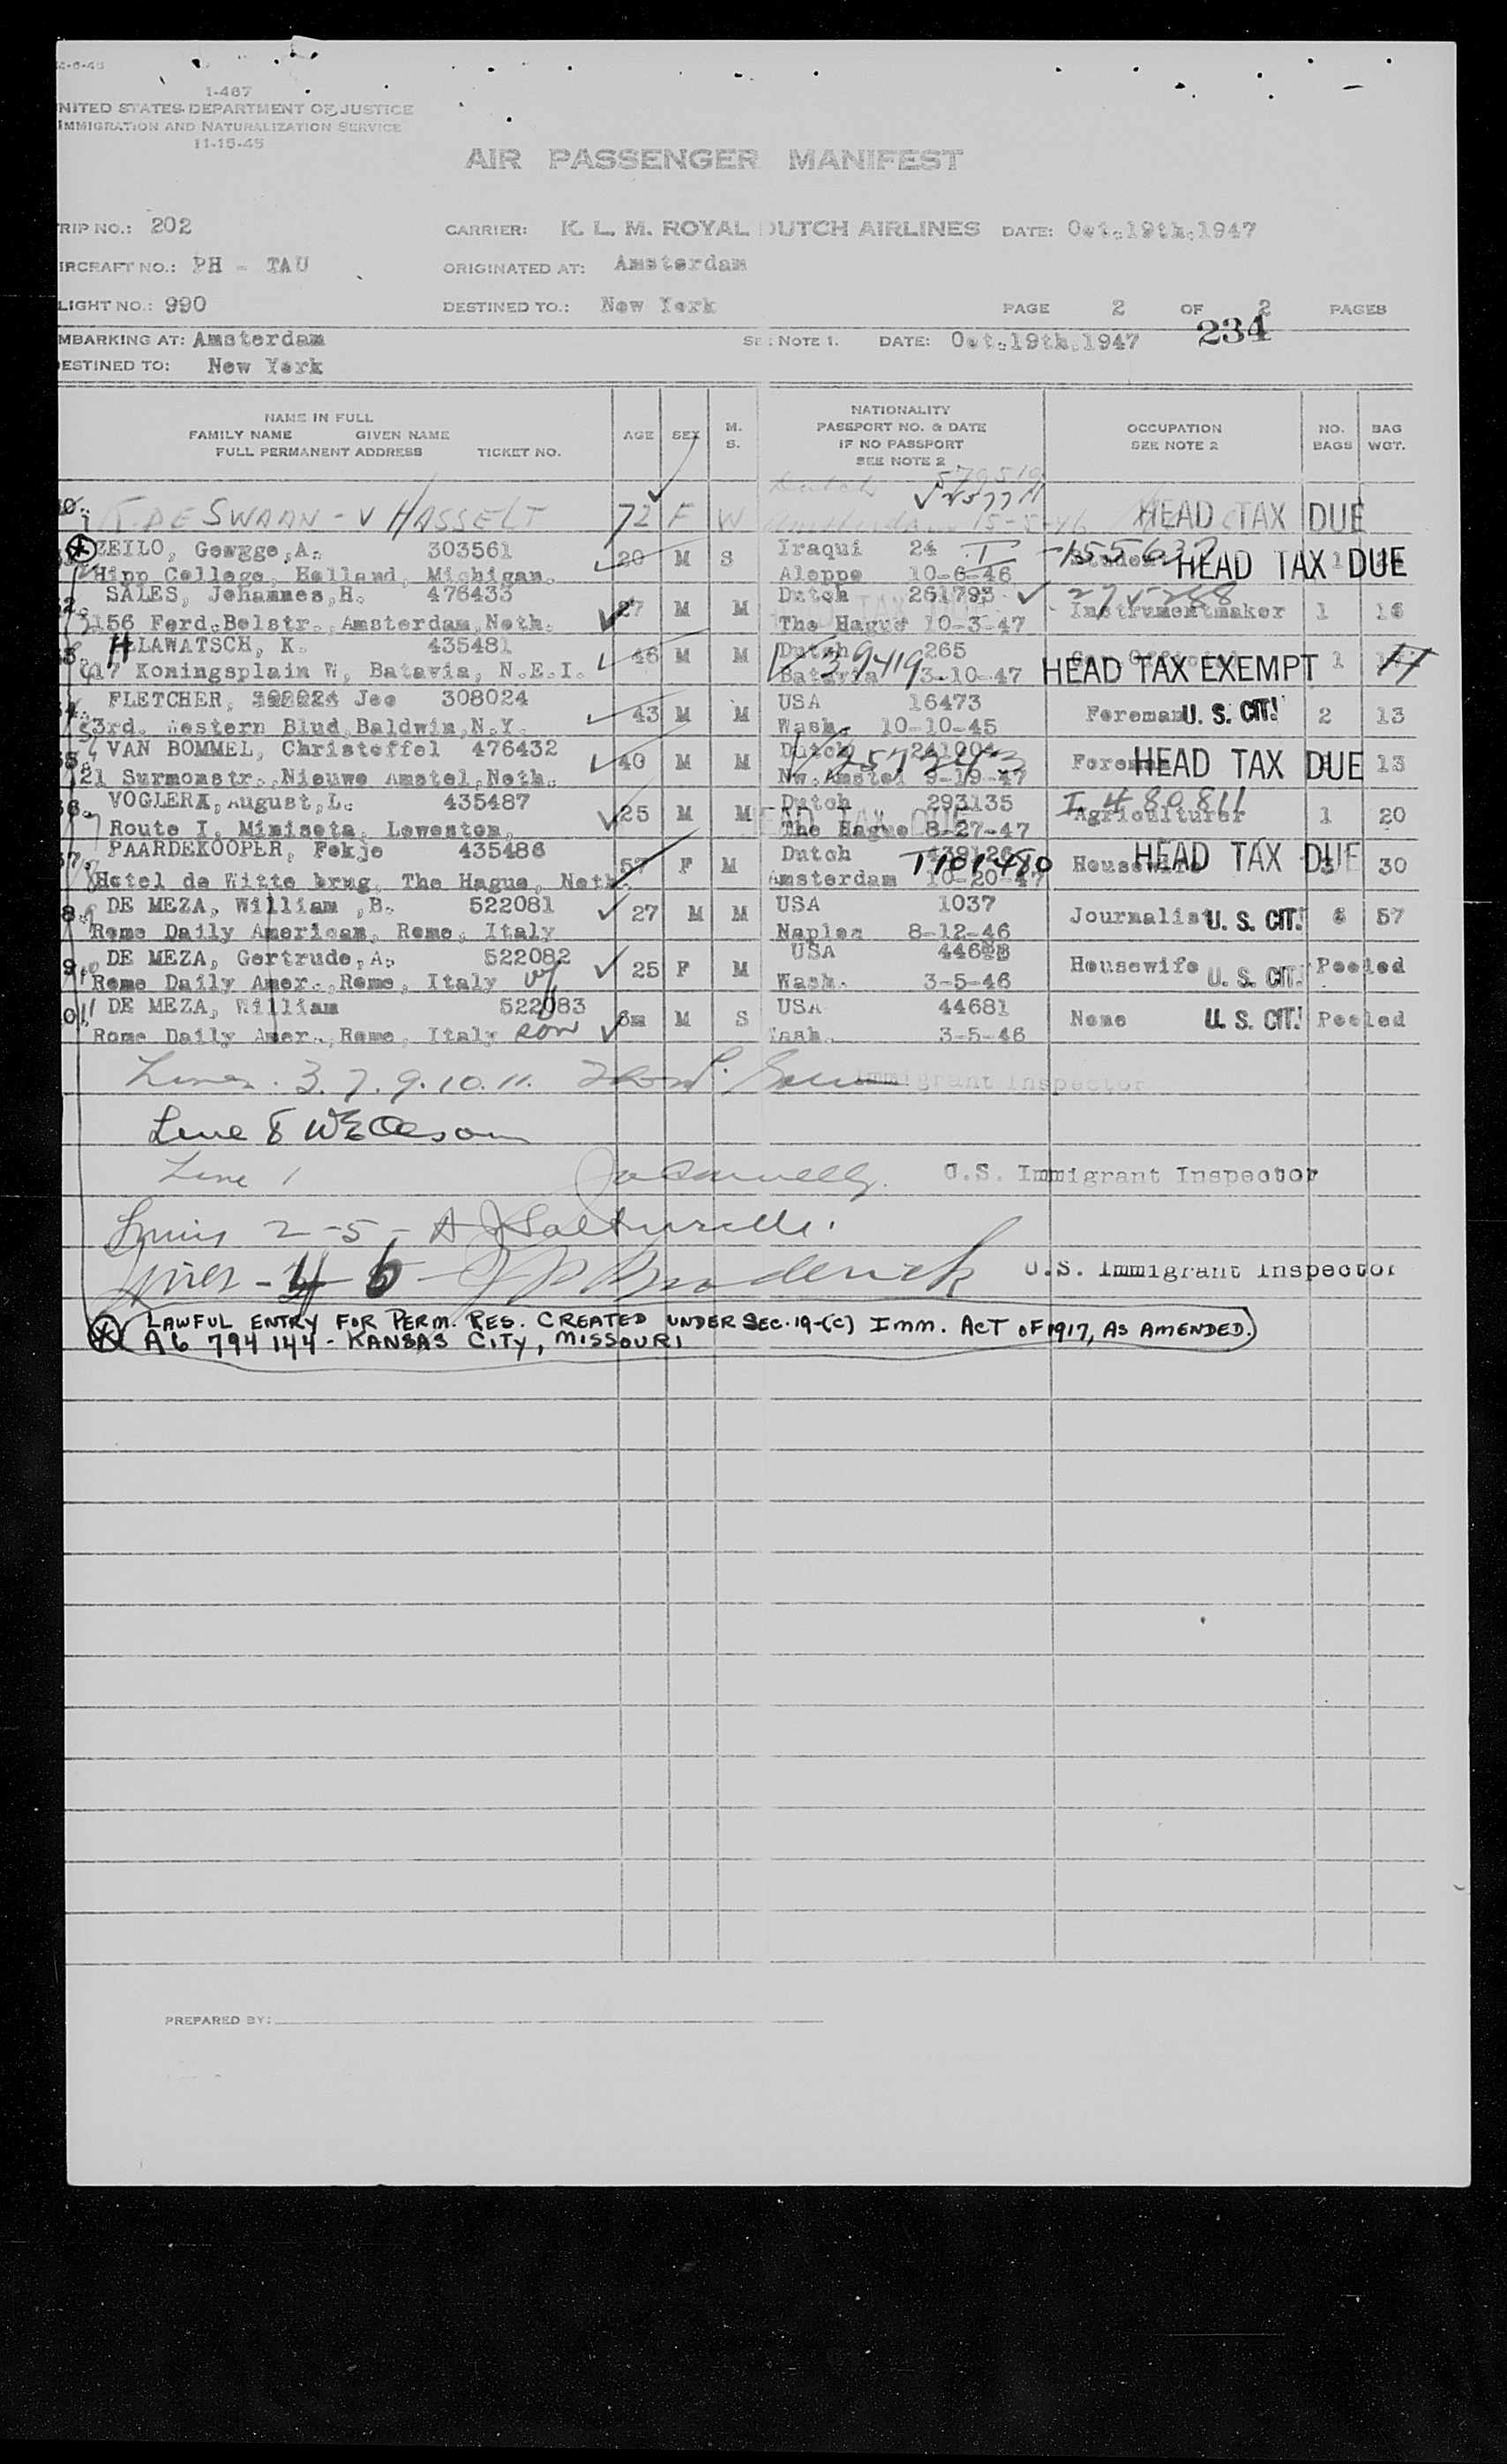 1-467
NITED STATES DEPARTMENT OF JUSTICE
IMMIGRATION AND NATURALIZATION SERVICE
11-15-45
AIR PASSENGER MANIFEST
RIP NO.: 202 CARRIER: K. L. M. ROYAL DUTCH AIRLINES DATE: Oct.19th.1947
IRCRAFT NO.: PH - TAU ORIGINATED AT: Amsterdam
LIGHT NO.: 990 DESTINED TO.: New York PAGE 2 OF 2 PAGES
234
MBARKING AT: Amsterdam SEE NOTE 1. DATE: Oct.19th.1947
ESTINED TO: New York
NAME IN FULL
FAMILY NAME GIVEN NAME
FULL PERMANENT ADDRESS TICKET NO.
AGE SEX M. S.
NATIONALITY
PASSPORT NO. & DATE
IF NO PASSPORT
SEE NOTE 2
OCCUPATION
SEE NOTE 2
NO. BAGS
BAG WGT.
DE SWAAN - V HASSELT 72 F W Dutch HEAD TAX DUE
15-5-46
ZEILO, Geogge,A. 303561 20 M S Iraqui 24 HEAD TAX DUE 1
Hipp College, Holland, Michigan. Aleppo 10-6-46
SALES, Johannes,H. 476433 27 M M Dutch 261793 Instrumentmaker 1 16
156 Ferd.Bolstr., Amsterdam,Neth. The Hague 10-3-47
HLAWATSCH, K. 435481 46 M M Dutch 265 39419 HEAD TAX EXEMPT 1
17 Koningsplain W, Batavia, N.E.I. Batavia 3-10-47
FLETCHER, Joe 308024 43 M M USA 16473 Foreman U. S. CIT! 2 13
3rd. Western Blud,Baldwin,N.Y. Wash. 10-10-45
VAN BOMMEL, Christoffel 476432 40 M M Dutch Foreman HEAD TAX DUE 13
21 Surmonstr.,Nieuwe Amstel,Neth. Nw.Amstel 9-19-47
VOGLERX, August,L. 435487 25 M M Dutch 293135 I 480811 Agriculturer 1 20
Route I, Minisota, Leweston, The Hague 8-27-47
PAARDEKOOPER, Fokje 435486 57 F M Dutch 439126 T 101480 Housewife HEAD TAX DUE 30
Hotel de Witte brug, The Hague, Neth. Amsterdam 10-20-47
DE MEZA, William ,B. 522081 27 M M USA 1037 Journalist U. S. CIT! 57
Rome Daily American, Rome, Italy Naples 8-12-46
DE MEZA, Gertrude,A. 522082 25 F M USA Housewife U. S. CIT! Pooled
Rome Daily Amer., Rome, Italy wf Wash. 3-5-46
DE MEZA, William 522083 6m M S USA 44681 None U. S. CIT! Pooled
Rome Daily Amer.,Rome, Italy son Wash. 3-5-46
Lines. 3. 7. 9. 10. 11. Immigrant Inspector
Line 8
Line 1 U.S. Immigrant Inspector
Lines 2-5-
Lines - 4 6 - J P Broderick U.S. Immigrant Inspector
LAWFUL ENTRY FOR PERM. RES. CREATED UNDER SEC. 19-(C) IMM. ACT OF 1917, AS AMENDED.
A6 794 144 - KANSAS CITY, MISSOURI
PREPARED BY: